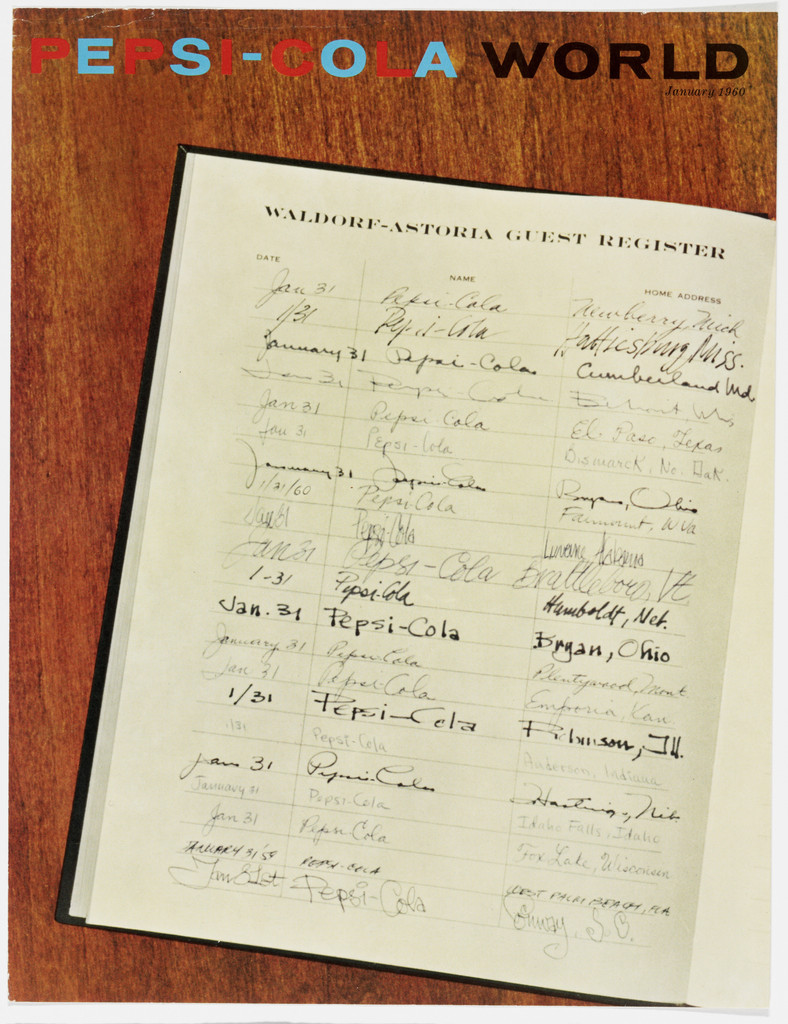 PEPSI-COLA WORLD
January 1960
WALDORF-ASTORIA GUEST REGISTER
DATE NAME HOME ADDRESS
Jan 31 Pepsi-Cola Newberry Mich
1/31 Pepsi-Cola Hattiesburg Miss.
January 31 Pepsi-Cola Cumberland Md.
Jan 31 Pepsi-Cola Beloit Wis,
Jan 31 Pepsi-Cola El Paso, Texas
Jan 31 Pepsi-Cola Bismarck, No. Dak.
January 31 Pepsi-Cola Bryan, Ohio
1/31/60 Pepsi Cola Fairmont, W Va
Jan 31 Pepsi-Cola Luverne Alabama
Jan 31 Pepsi-Cola Brattleboro, Vt.
1-31 Pepsi-Cola Humboldt, Neb.
Jan. 31 Pepsi-Cola Bryan, Ohio
January 31 Pepsi-Cola Plentywood, Mont
Jan 31 Pepsi-Cola Emporia, Kan
1/31 Pepsi-Cola Robinson, Ill.
1/31 Pepsi-Cola Anderson, Indiana
Jan 31 Pepsi-Cola Hastings, Neb.
January 31 Pepsi-Cola Idaho Falls, Idaho
Jan 31 Pepsi-Cola Fox Lake, Wisconsin
JANUARY 31 '59 PEPSI-COLA WEST PALM BEACH, FLA
Jan 31st Pepsi-Cola Conway, S.C.